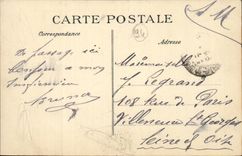 CARTE POSTALE
Correspondance
Adresse
S M
De passage ici
bonjour a mon
Mademoiselle
Y. Legrand
108 Rue de Paris
Villeneuve St Georges
Seine et Oise